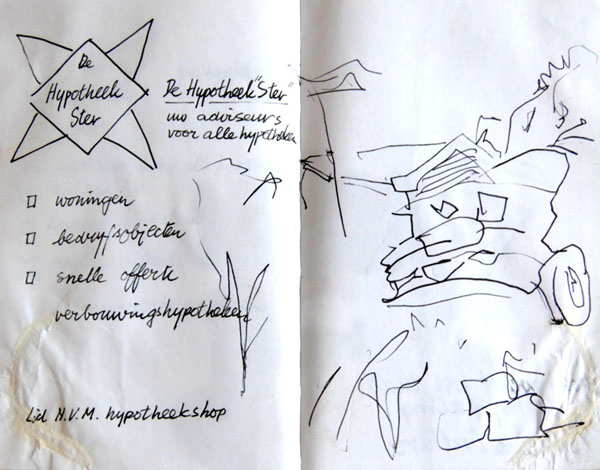 De
Hypotheek
Ster
De Hypotheek "Ster"
uw adviseurs
voor alle hypotheken
woningen
bedrijfsobjecten
snelle offerte
verbouwingshypotheken
Lid N.V.M. hypotheekshop